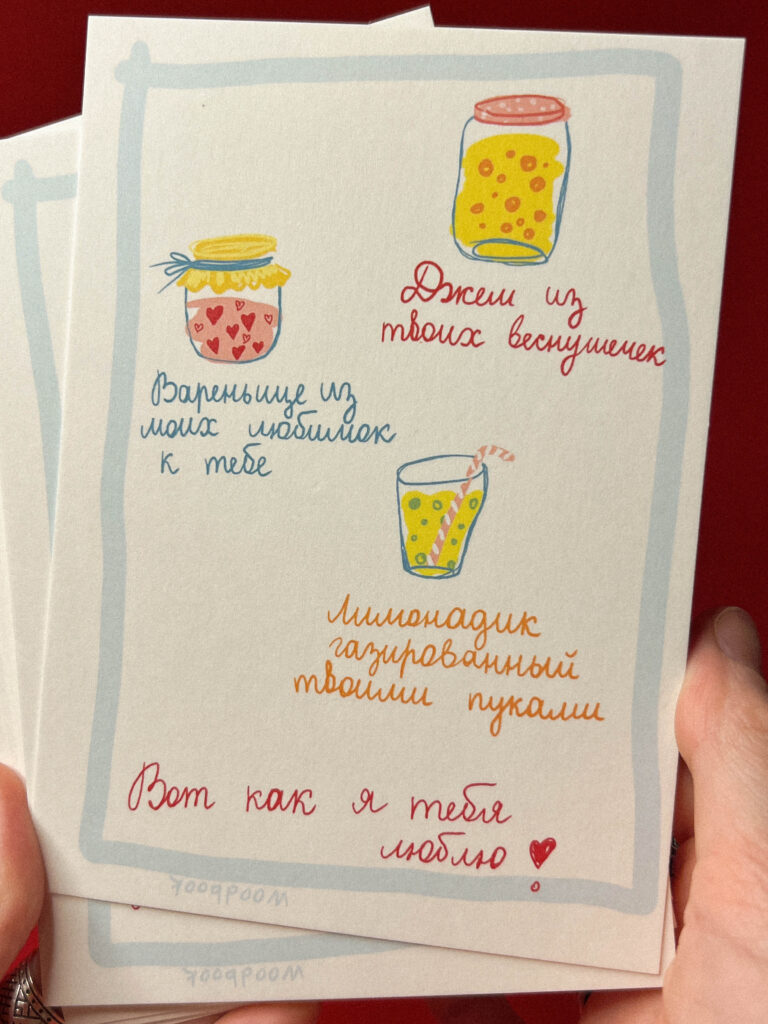 Джем из
твоих веснушечек
Вареньице из
моих любимок
к тебе
Лимонадик
газированный
твоими пуками
Вот как я тебя
люблю
woodpook
woodpook